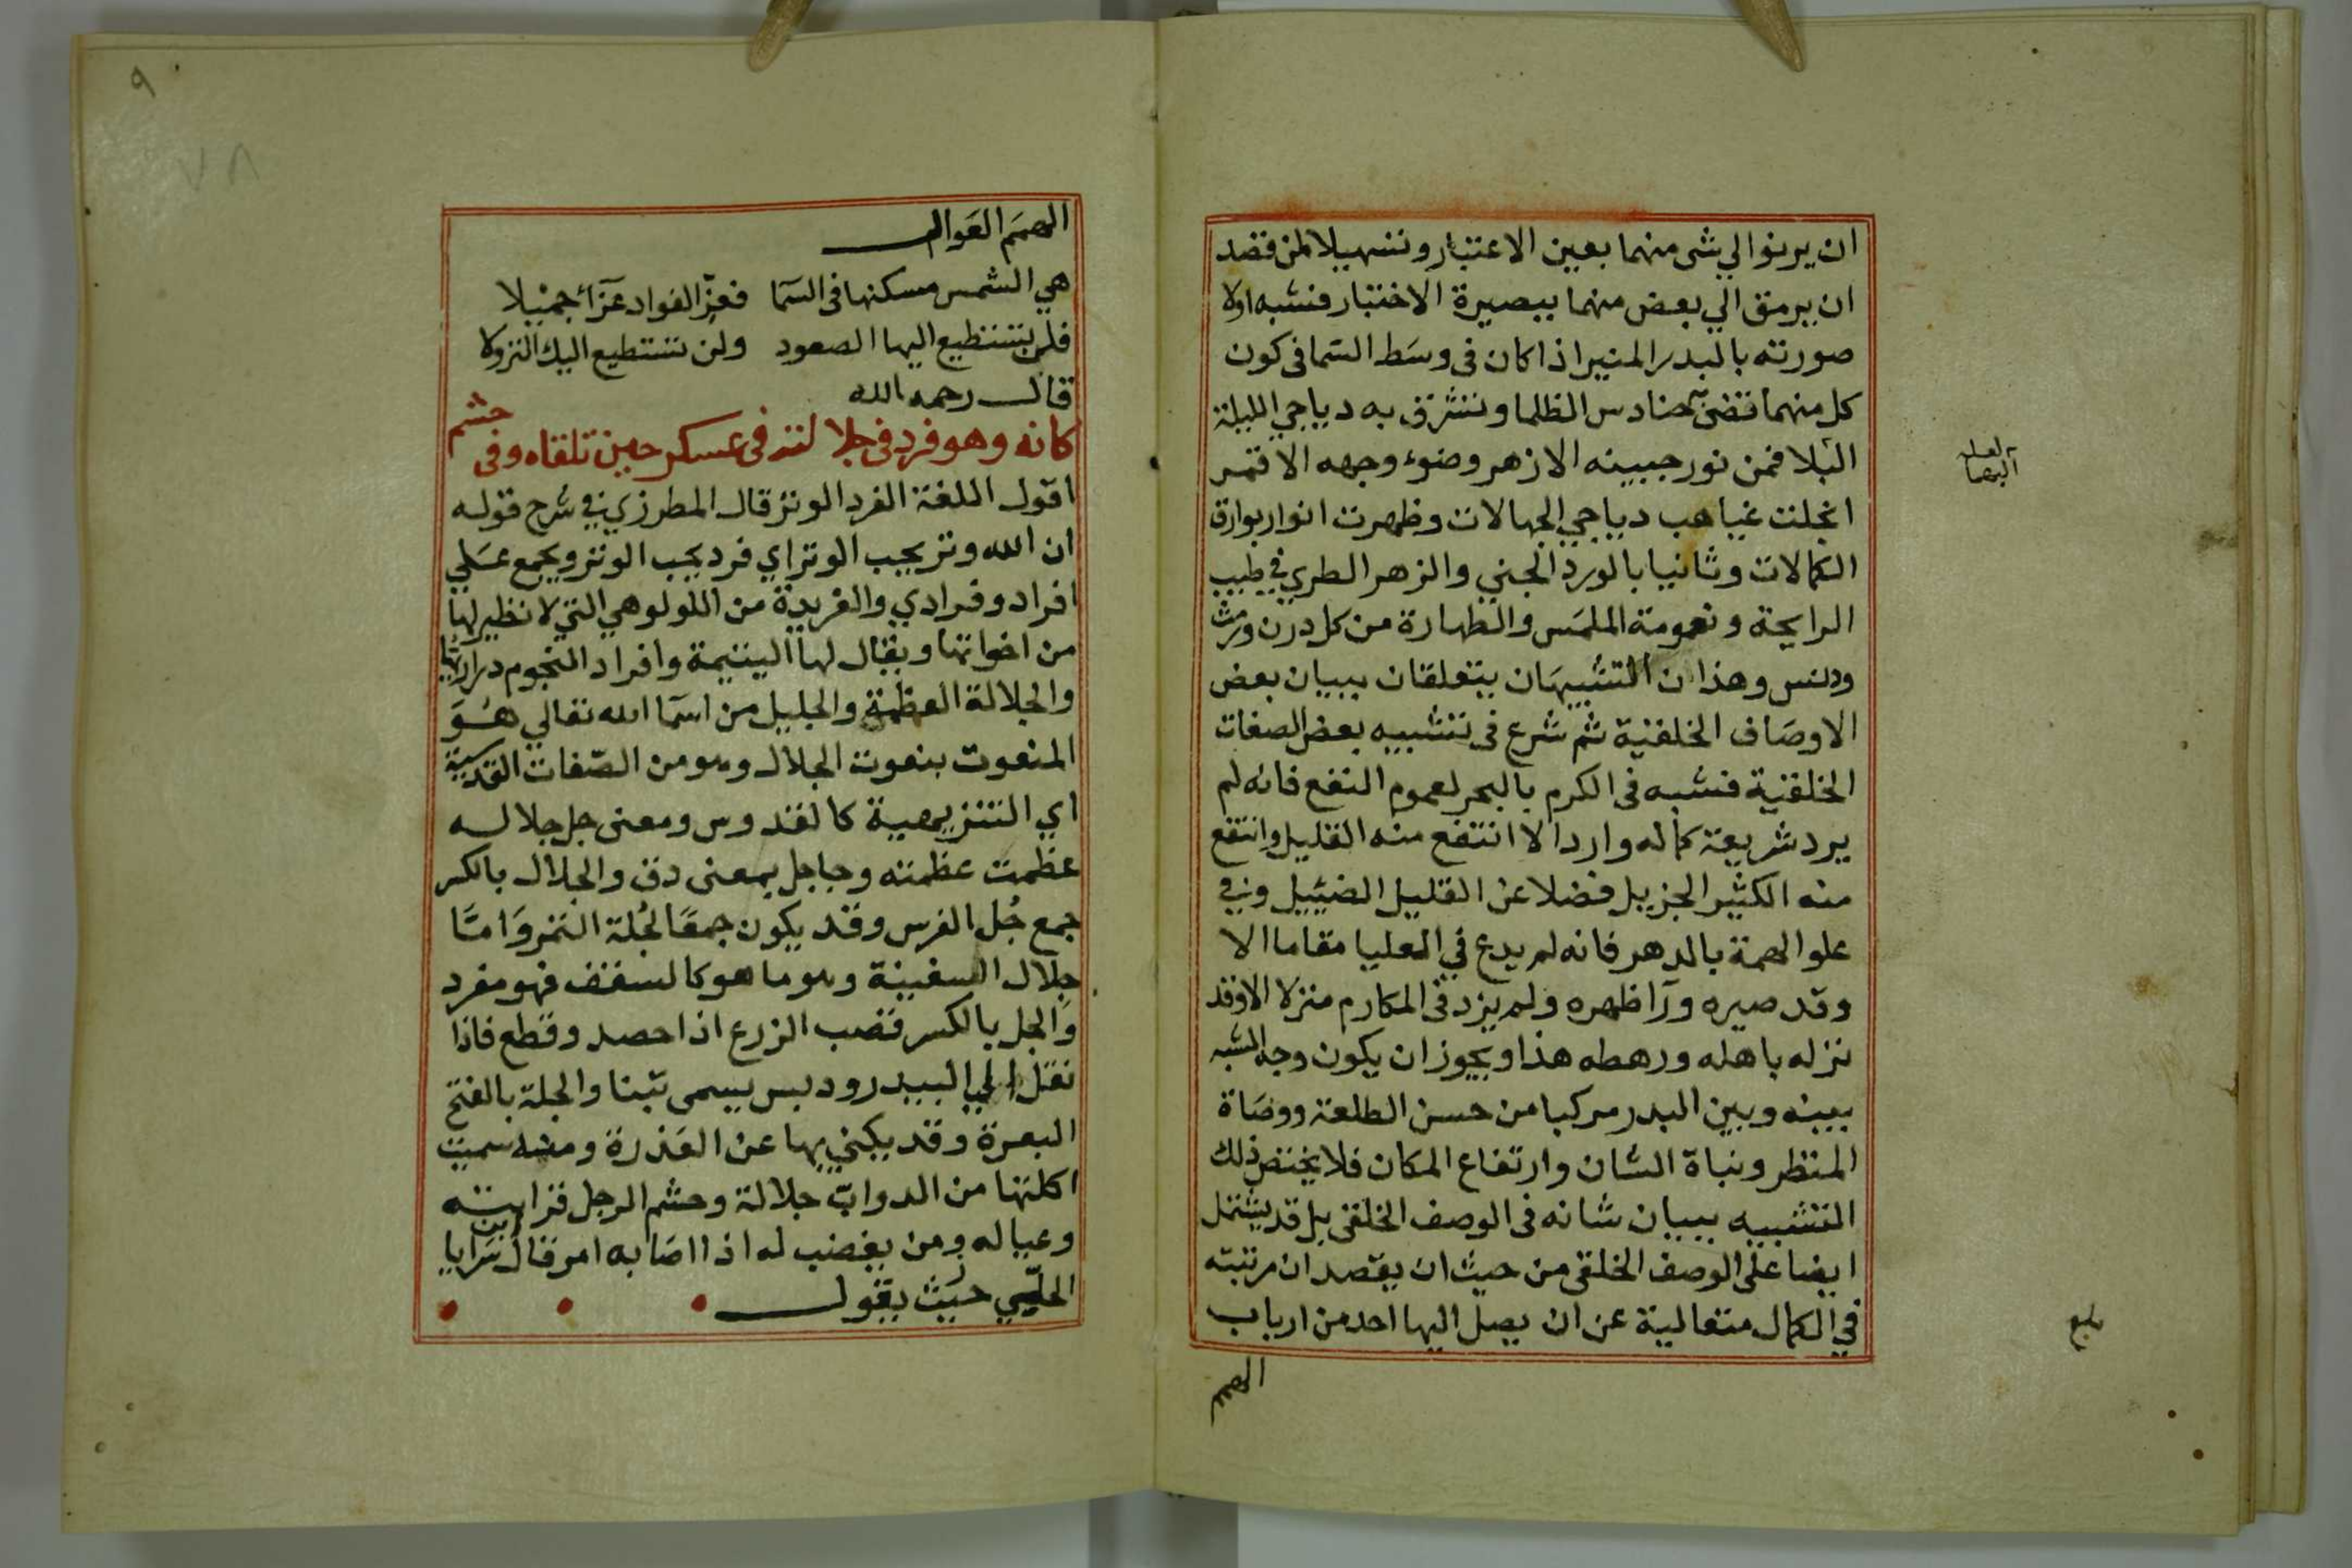 ان يرنوا الي شى منهما بعين الاعتبار وتسهيلا لمن قصد
ان يرمق الي بعض منهما ببصيرة الاختبار فشبه اولا
صورته بالبدر المنير اذا كان فى وسَط السَما فى كون
كل منهما تضئ به حنادس الظلما وتشرق به دياجي الليلة
البلا فمن نور جبينه الازهر وضوء وجهه الاقمر
انجلت غياهب دياجي الجهالات وظهرت انوار بوارق
الكمالات وثانيا بالورد الجني والزهر الطري في طيب
الرايحة ونعومة الملمَس والطهارة من كل درن
ودنس وهذان التشبيهَان يتعلقان ببيان بعض
الاوصَاف الخلقية ثم شرع فى تشبيه بعض الصفات
الخلقية فشبه فى الكرم بالبحر لعموم النفع فانه لم
يرد شريعة كماله واردا الا انتفع منه القليل وانتفع
منه الكثير الجزيل فضلا عن القليل الضئيل وفي
علو الهمة بالدهر فانه لم يدع في العليا مقاما الا
وقد صيره ورآ ظهره ولم يزد فى المكارم منزلا الا وقد
نزله باهله ورهطه هذا ويجوز ان يكون وجه الشبه
بينه وبين البدر مركبا من حسن الطلعة ووضَاة
المنظر ونباة الشان وارتفاع المكان فلا يختص ذلك
التشبيه ببيان شانه فى الوصف الخلقى بل قد يشتمل
ايضا على الوصف الخلقى من حيث ان يقصد ان مرتبته
في الكمال متعالية عن ان يصل اليها احد من ارباب
الهمم
لعله
البهما
بلغ
٩
٧٨
الهمَم العَوالى
هي الشمس مسكنها فى السَما فعزّ الفواد عَزآ جميلا
فلن تستطيع اليها الصعود ولن تستطيع اليك النزولا
قال رحمه الله
كانه وهو فرد فى جلالته فى عسكر حين تلقاه وفى حشم
اقول اللغة الفرد الوتر قال المطرزي في شرح قوله
ان الله وتر يحب الوتر اي فرد يحب الوتر ويجمع عَلي
افراد وفرادي والفريدة من اللولو هي التي لا نظير لها
من اخواتها ويقال لها اليتيمة وافراد النجوم دراريها
والجلالة العظمة والجليل من اسَما الله تعالي هُوَ
المنعوت بنعوت الجلال وهو من الصّفات القدسية
اي التنزيهية كالقدوس ومعنى جل جلاله
عظمت عظمته وجا جل بمعنى دق والجلال بالكسر
جمع جُل الفرس وقد يكون جمعًا لجُلة التمر وَامّا
جِلال السفينة وهو ما هو كالسقف فهو مفرد
وَالجل بالكسر قصب الزرع اذا حصد وقطع فاذا
نقل الي البيدر وديس يسمى تبنا والجلة بالفتح
البعرة وقد يكنى بها عن العَذرة ومنه سميت
اكلتها من الدوابّ جلالة وحشم الرجل قرابته
وعياله ومن يغضب له اذا اصَابه امر قال ابن سَرايا
الحلّي حيَث يقول